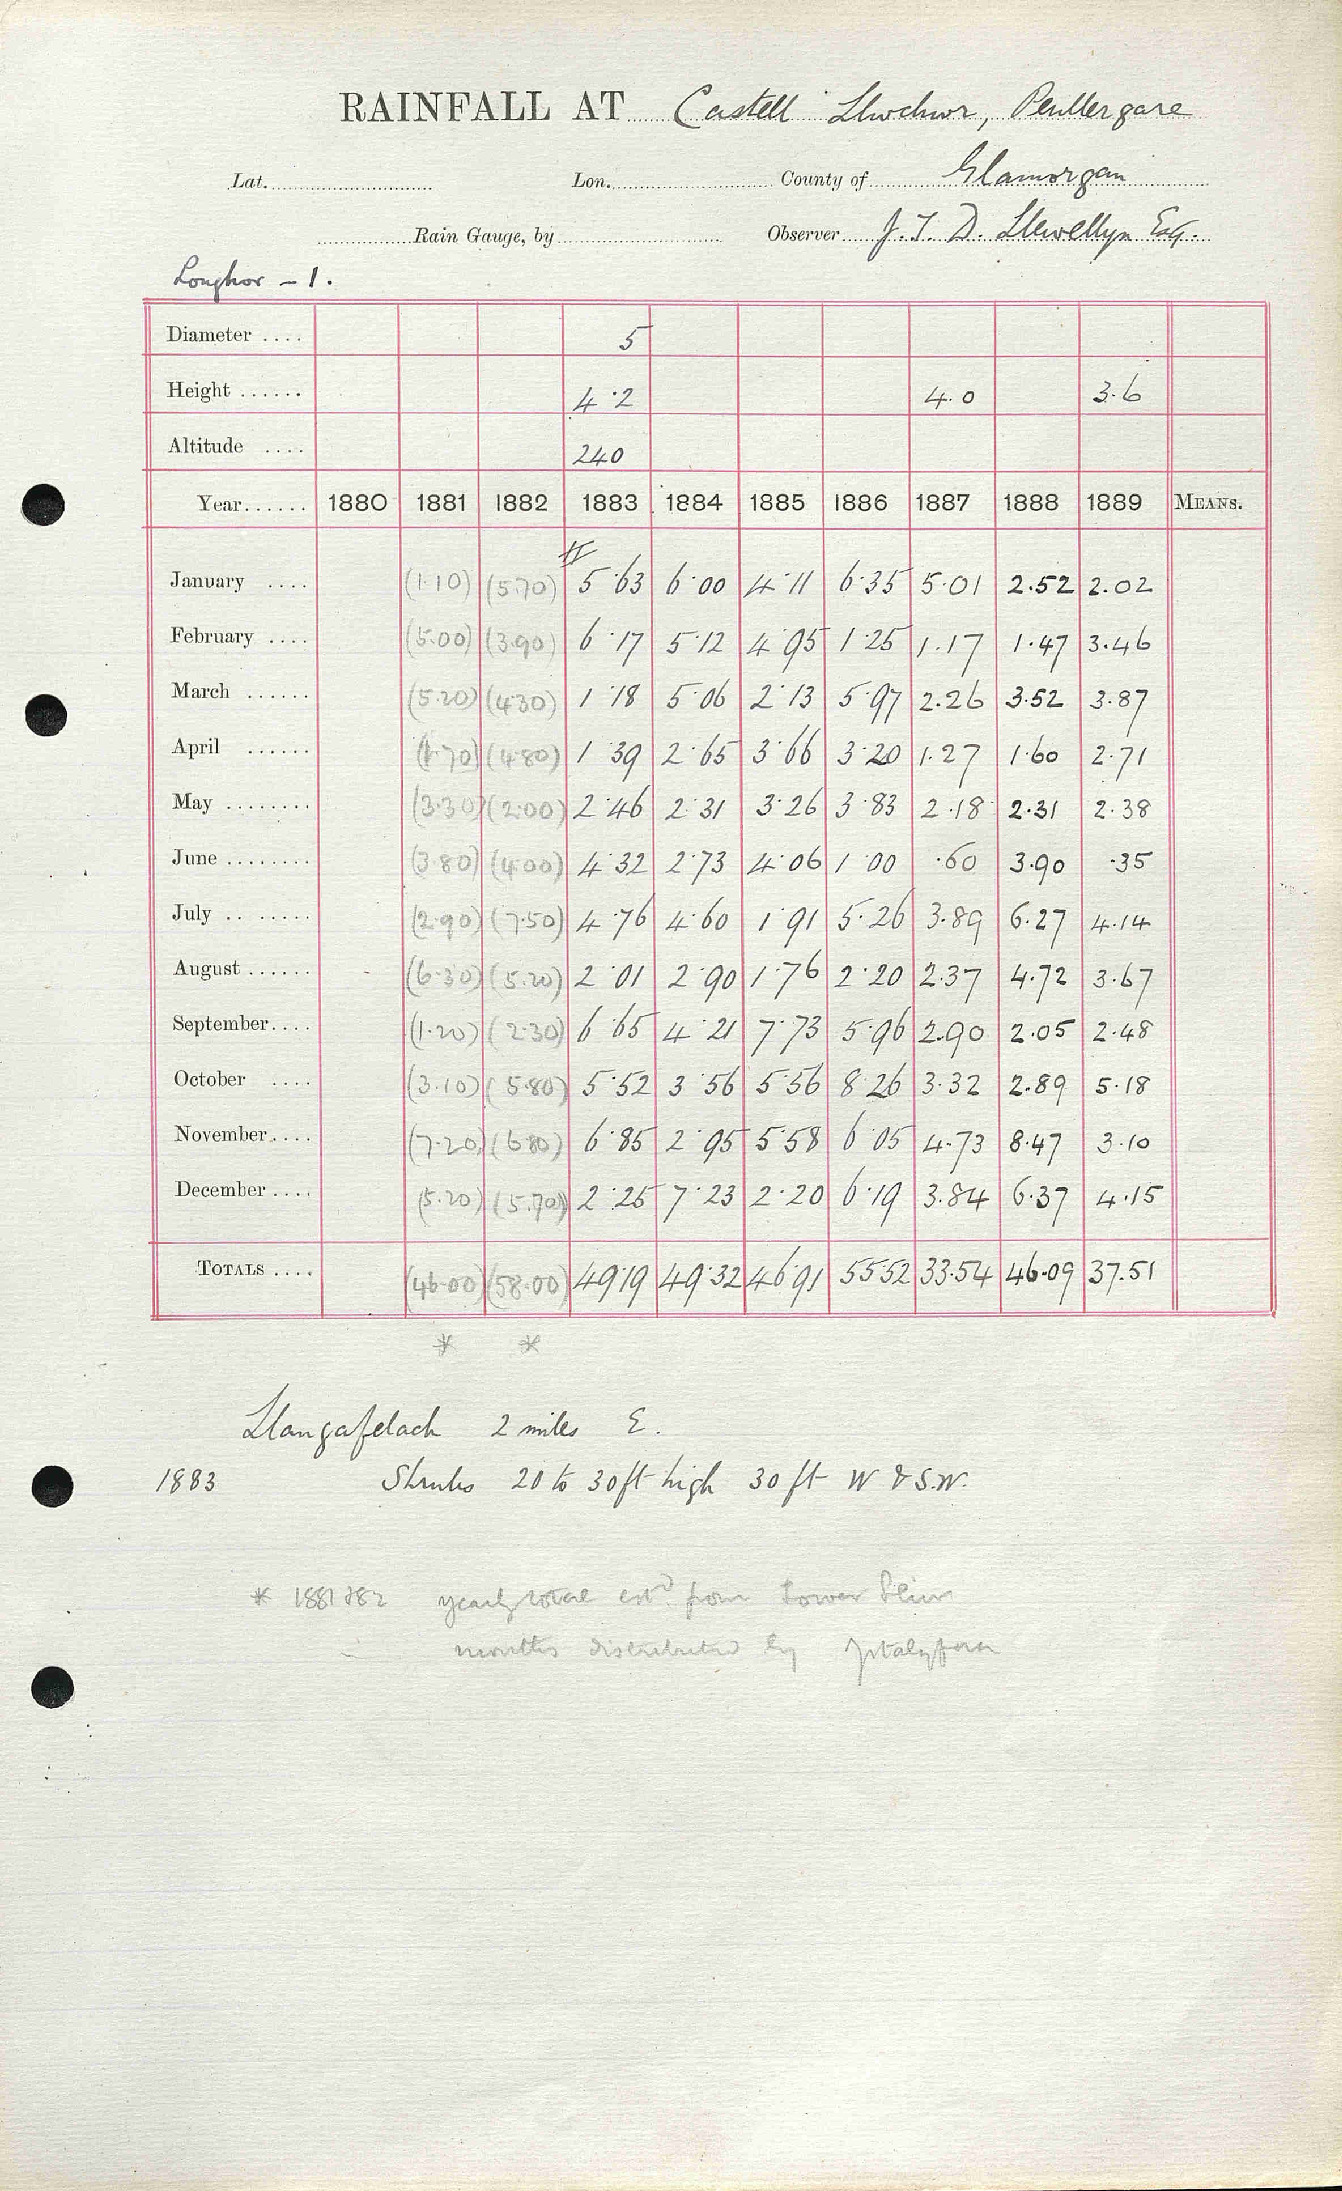 RAINFALL AT Castell Llwchwr, Penllergare
Lat. Lon. County of Glamorgan
Rain Gauge, by Observer J. T. D. Llewellyn Esq.
Loughor - 1.
Diameter .... 5
Height ...... 4.2 4.0 3.6
Altitude .... 240
Year...... 1880 1881 1882 1883 1884 1885 1886 1887 1888 1889 MEANS.
January .... (1.10) (5.70) 5.63 6.00 4.11 6.35 5.01 2.52 2.02
February .... (5.00) (3.90) 6.17 5.12 4.95 1.25 1.17 1.47 3.46
March ...... (5.20) (4.30) 1.18 5.06 2.13 5.97 2.26 3.52 3.87
April ...... (1.70) (4.80) 1.39 2.65 3.66 3.20 1.27 1.60 2.71
May ........ (3.30) (2.00) 2.46 2.31 3.26 3.83 2.18 2.31 2.38
June ........ (3.80) (4.00) 4.32 2.73 4.06 1.00 .60 3.90 .35
July .. ...... (2.90) (7.50) 4.76 4.60 1.91 5.26 3.89 6.27 4.14
August ...... (6.30) (5.20) 2.01 2.90 1.76 2.20 2.37 4.72 3.67
September.... (1.20) (2.30) 6.65 4.21 7.73 5.96 2.90 2.05 2.48
October .... (3.10) (5.80) 5.52 3.56 5.56 8.26 3.32 2.89 5.18
November.... (7.20) (6.80) 6.85 2.95 5.58 6.05 4.73 8.47 3.10
December .... (5.20) (5.70) 2.25 7.23 2.20 6.19 3.84 6.37 4.15
TOTALS .... (46.00) (58.00) 49.19 49.32 46.91 55.52 33.54 46.09 37.51
* *
Llangafelach 2 miles E.
1883 Shrubs 20 to 30 ft high 30 ft W & S.W.
* 1881 & 82 yearly total estd. from Lower
months distributed by Ystalyfera